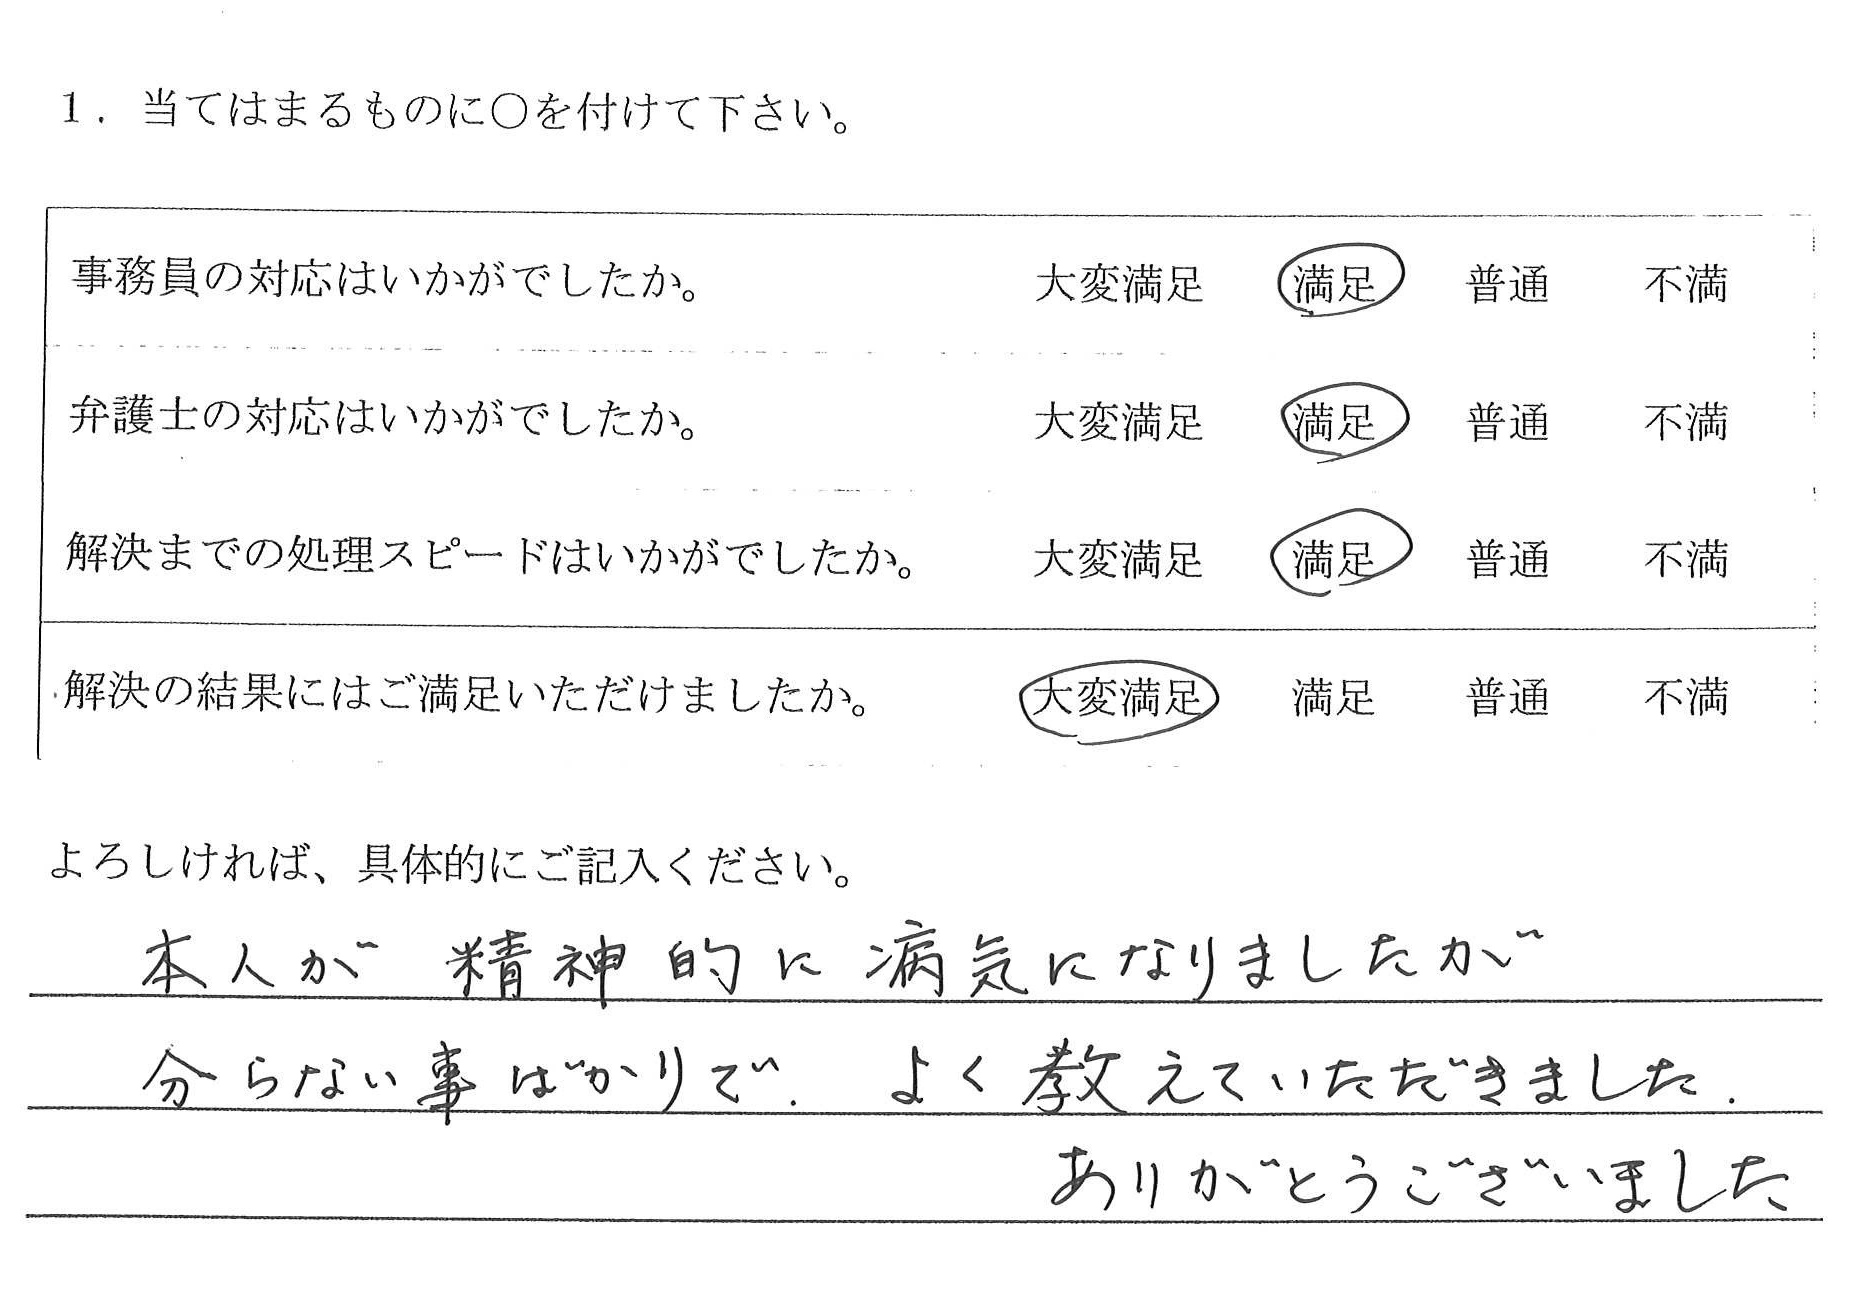 1．当てはまるものに○を付けて下さい。
事務員の対応はいかがでしたか。 大変満足 満足 普通 不満
弁護士の対応はいかがでしたか。 大変満足 満足 普通 不満
解決までの処理スピードはいかがでしたか。 大変満足 満足 普通 不満
解決の結果にはご満足いただけましたか。 大変満足 満足 普通 不満
よろしければ、具体的にご記入ください。
本人が 精神的に病気になりましたが
分らない事ばかりで. よく教えていただきました.
ありがとうございました